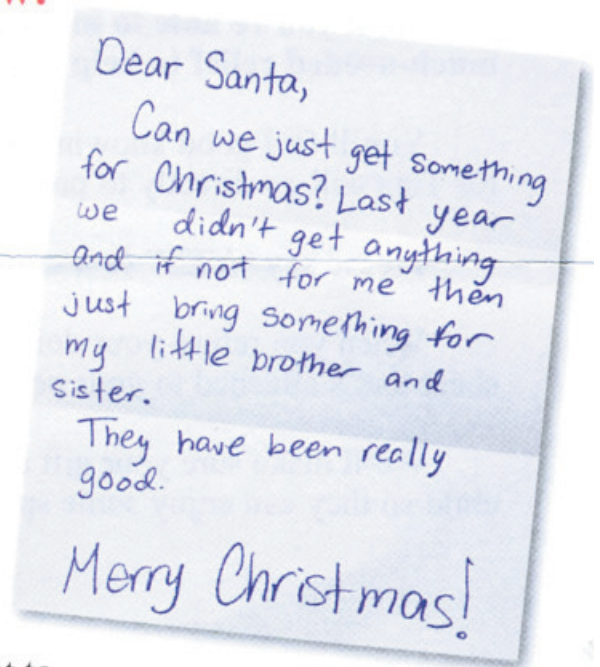 Dear Santa,
Can we just get something
for Christmas? Last year
we didn't get anything
and if not for me then
just bring something for
my little brother and
sister.
They have been really
good.
Merry Christmas!